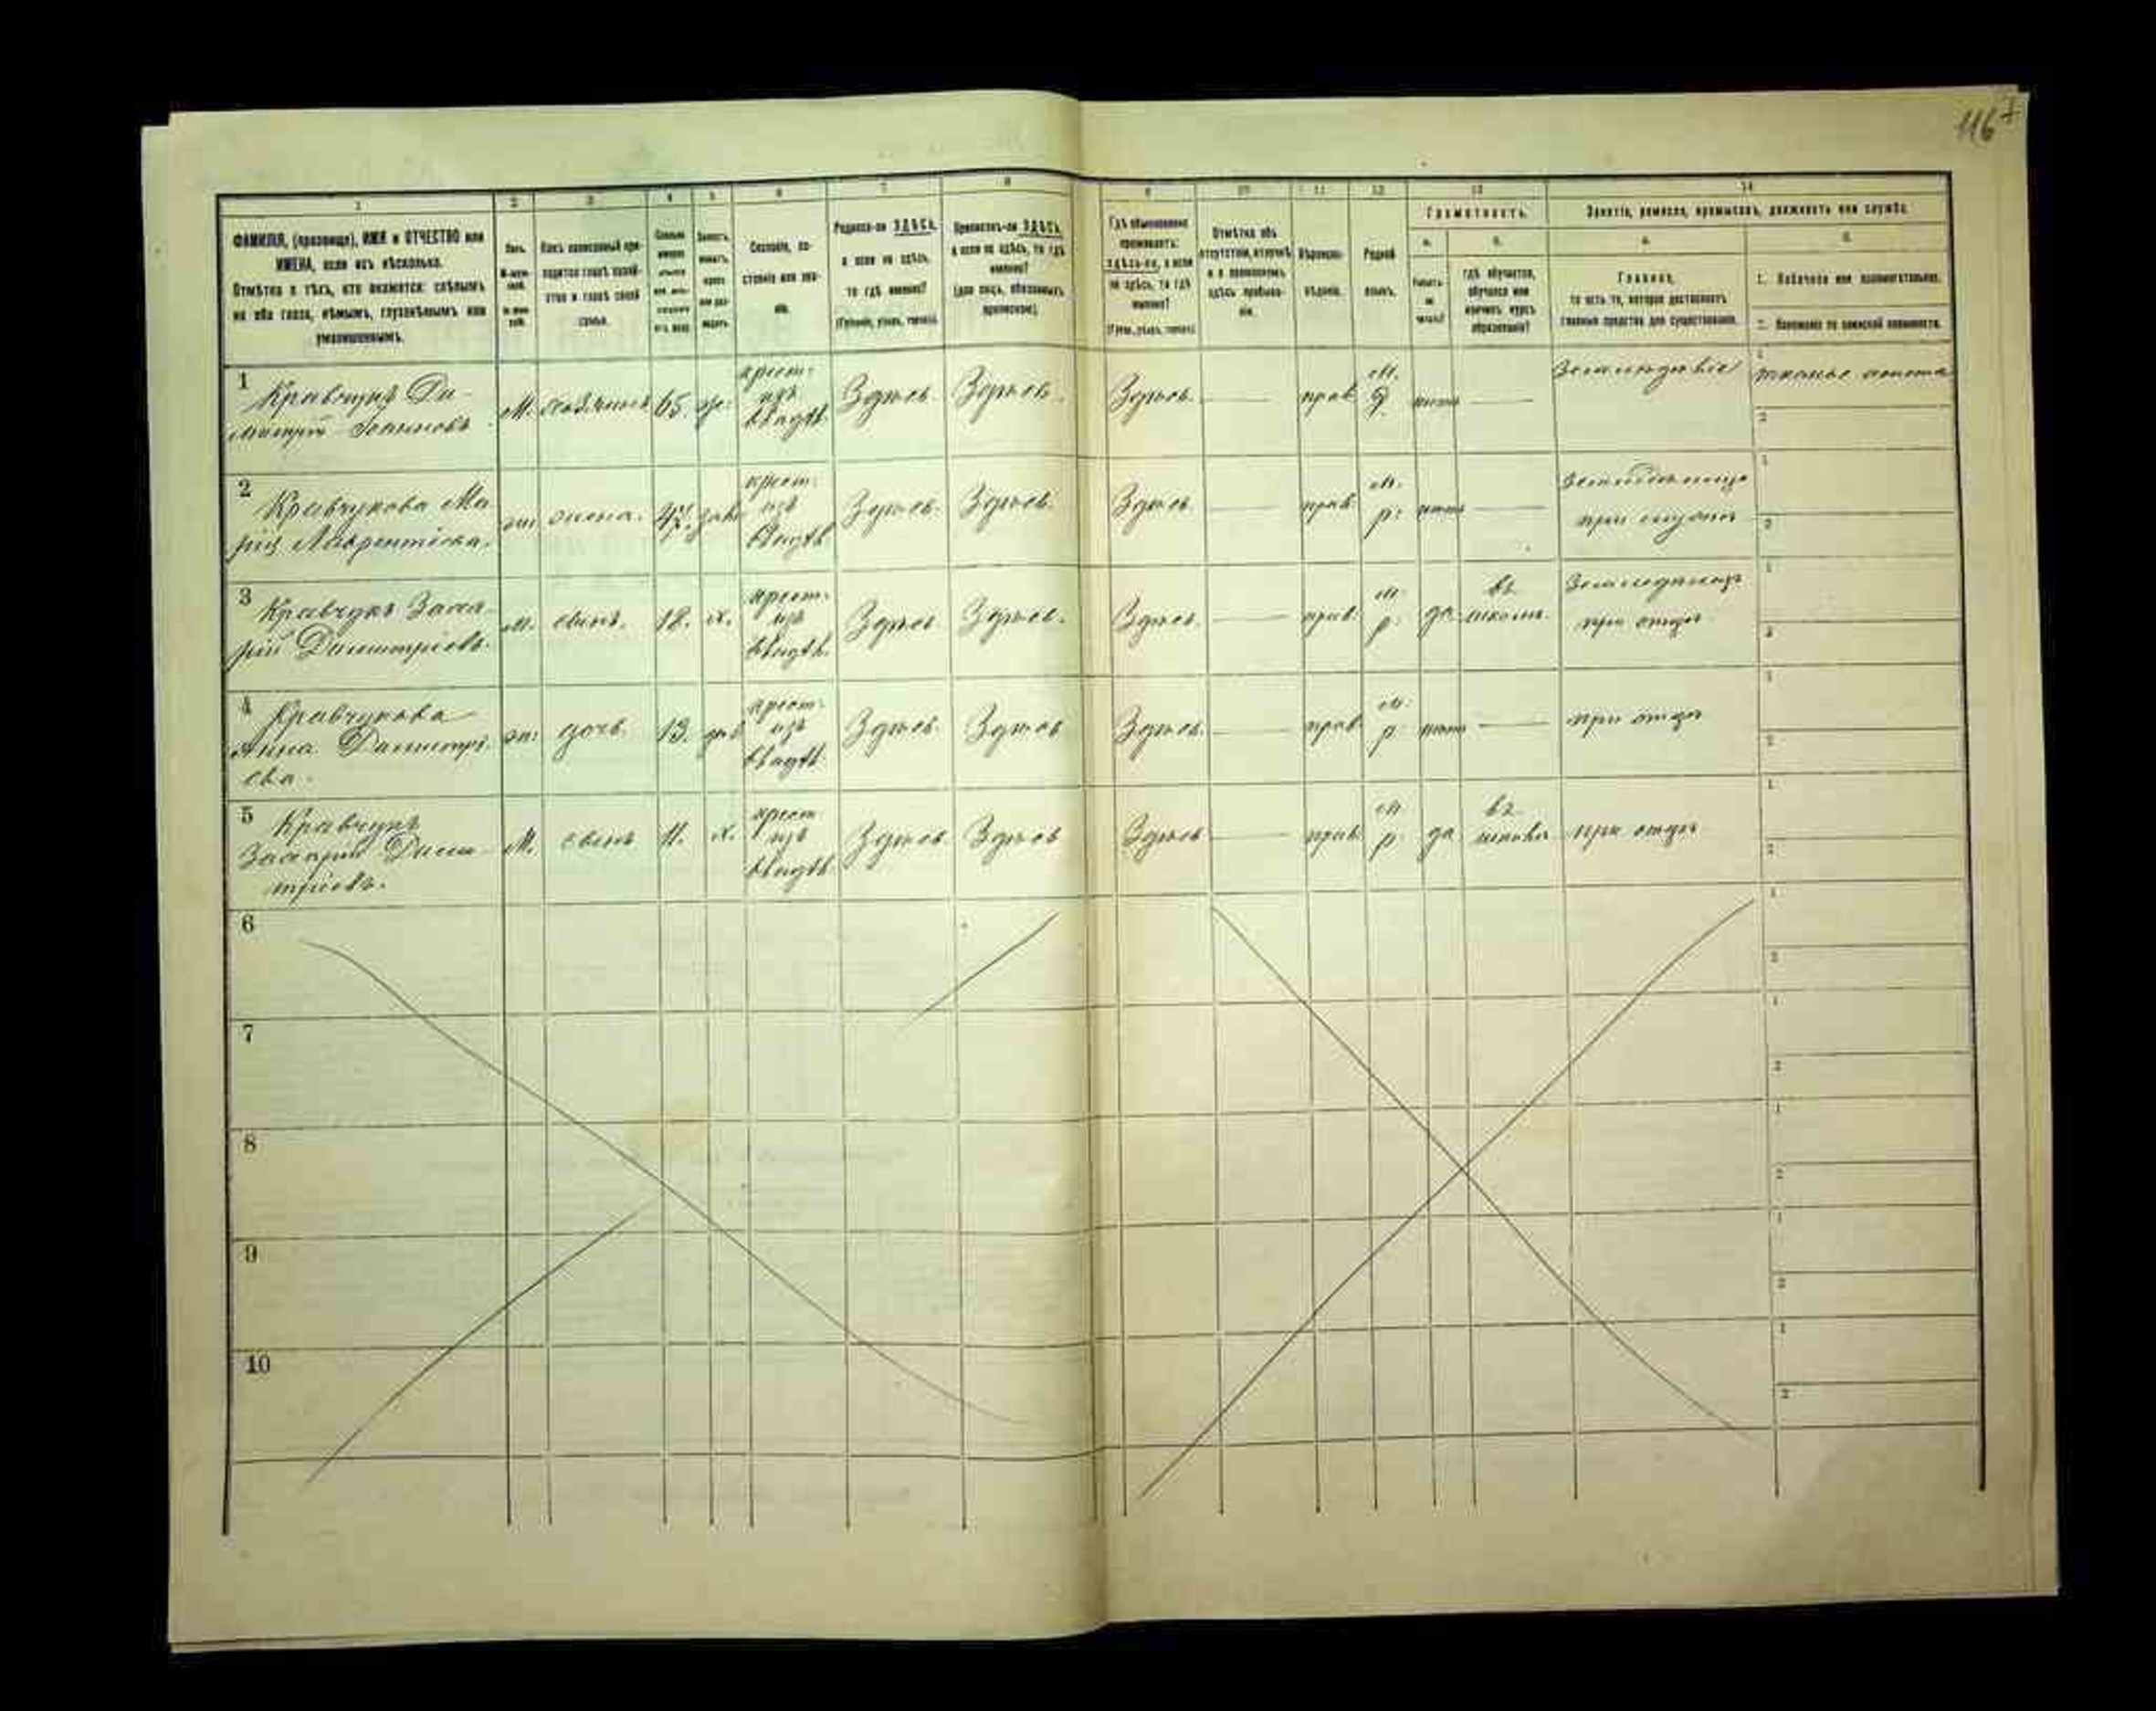 116
1 2 3 4 5 6 7 8 9 10 11 12 13 14
ФАМИЛІЯ, (прозвище), ИМЯ и ОТЧЕСТВО или
ИМЕНА, если ихъ нѣсколько.
Отмѣтка о тѣхъ, кто окажется: слѣпымъ
на оба глаза, нѣмымъ, глухонѣмымъ или
умалишеннымъ.
Полъ.
Какъ записанный при-
ходится главѣ хозяй-
ства и главѣ своей
семьи.
Сословіе, со-
стояніе или зва-
ніе.
Родился-ли ЗДѢСЬ,
а если не здѣсь,
то гдѣ именно?
(Губернія, уѣздъ, городъ).
Приписанъ-ли ЗДѢСЬ,
а если не здѣсь, то гдѣ
именно?
(для лицъ, обязанныхъ
припискою).
Гдѣ обыкновенно
проживаетъ:
здѣсь-ли, а если
не здѣсь, то гдѣ
именно?
(Губер., уѣздъ, городъ).
Отмѣтка объ
отсутствіи, отлучкѣ
и о временномъ
здѣсь пребыва-
ніи.
Вѣроиспо-
вѣданіе.
Родной
языкъ.
Грамотность.
а.
Умѣетъ-
ли
читать?
б.
гдѣ обучается,
обучался или
кончилъ курсъ
образованія?
Занятіе, ремесло, промыселъ, должность или служба.
а.
Главное,
то есть то, которое доставляетъ
главныя средства для существованія.
б.
1. Побочное или вспомогательное.
2. Положеніе по воинской повинности.
1 Кравчукъ Ди-
митрій Іоанновъ М. хозяинъ 65. крест. изъ владѣ. Здѣсь Здѣсь Здѣсь прав. м. р. нѣтъ Земледѣліе 1 тканье
2
2 Кравчукова Ма-
рія Лаврентіева. жена. крест. изъ владѣ. Здѣсь. Здѣсь. Здѣсь прав. м. р. нѣтъ 1
при мужѣ 2
3 Кравчукъ Заха-
рій Димитріевъ. м. сынъ. 18. х. крест. изъ владѣ. Здѣсь Здѣсь. Здѣсь. прав. м. р. да въ школѣ. 1
при отцѣ 2
4 Кравчукова
Анна Димитрі-
ева. дочь 13. дѣв. крест. изъ владѣ. Здѣсь. Здѣсь Здѣсь. прав. м. р. нѣтъ при отцѣ 1
2
5 Кравчукъ
Захарій Дими-
тріевъ. М. сынъ 11. х. крест. изъ владѣ. Здѣсь Здѣсь Здѣсь прав. м. р. да въ школѣ при отцѣ 1
2
6 1
2
7 1
2
8 1
2
9 1
2
10 1
2